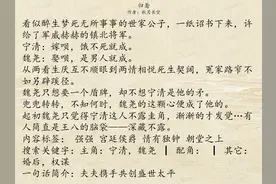 归鸾
作者：枕头长空
看似醉生梦死无所事事的世家公子，一纸诏书下来，许
给了军威赫赫的镇北将军。
宁清：嫁呗，饿不死就成。
魏尧：娶呗，是男人就成。
从两看生厌互不顺眼到两情相悦死生契阔，冤家路窄不
如另辟蹊径。
魏尧只想要一个盾牌，却不想行走了他的矛。
兜兜转转，不知何时，魏尧的这颗心便成了他的。
起初魏尧只觉得宁清这人不露圭角，渐渐的才发觉…有
人简直是王八的脑袋——深藏不露。
内容标签： 强强 宫廷侯爵 情有独钟 朝堂之上
搜索关键字：主角：宁清，魏尧 ┃ 配角： ┃ 其它：
婚后，权谋
一句话简介：夫夫携手共创盛世太平